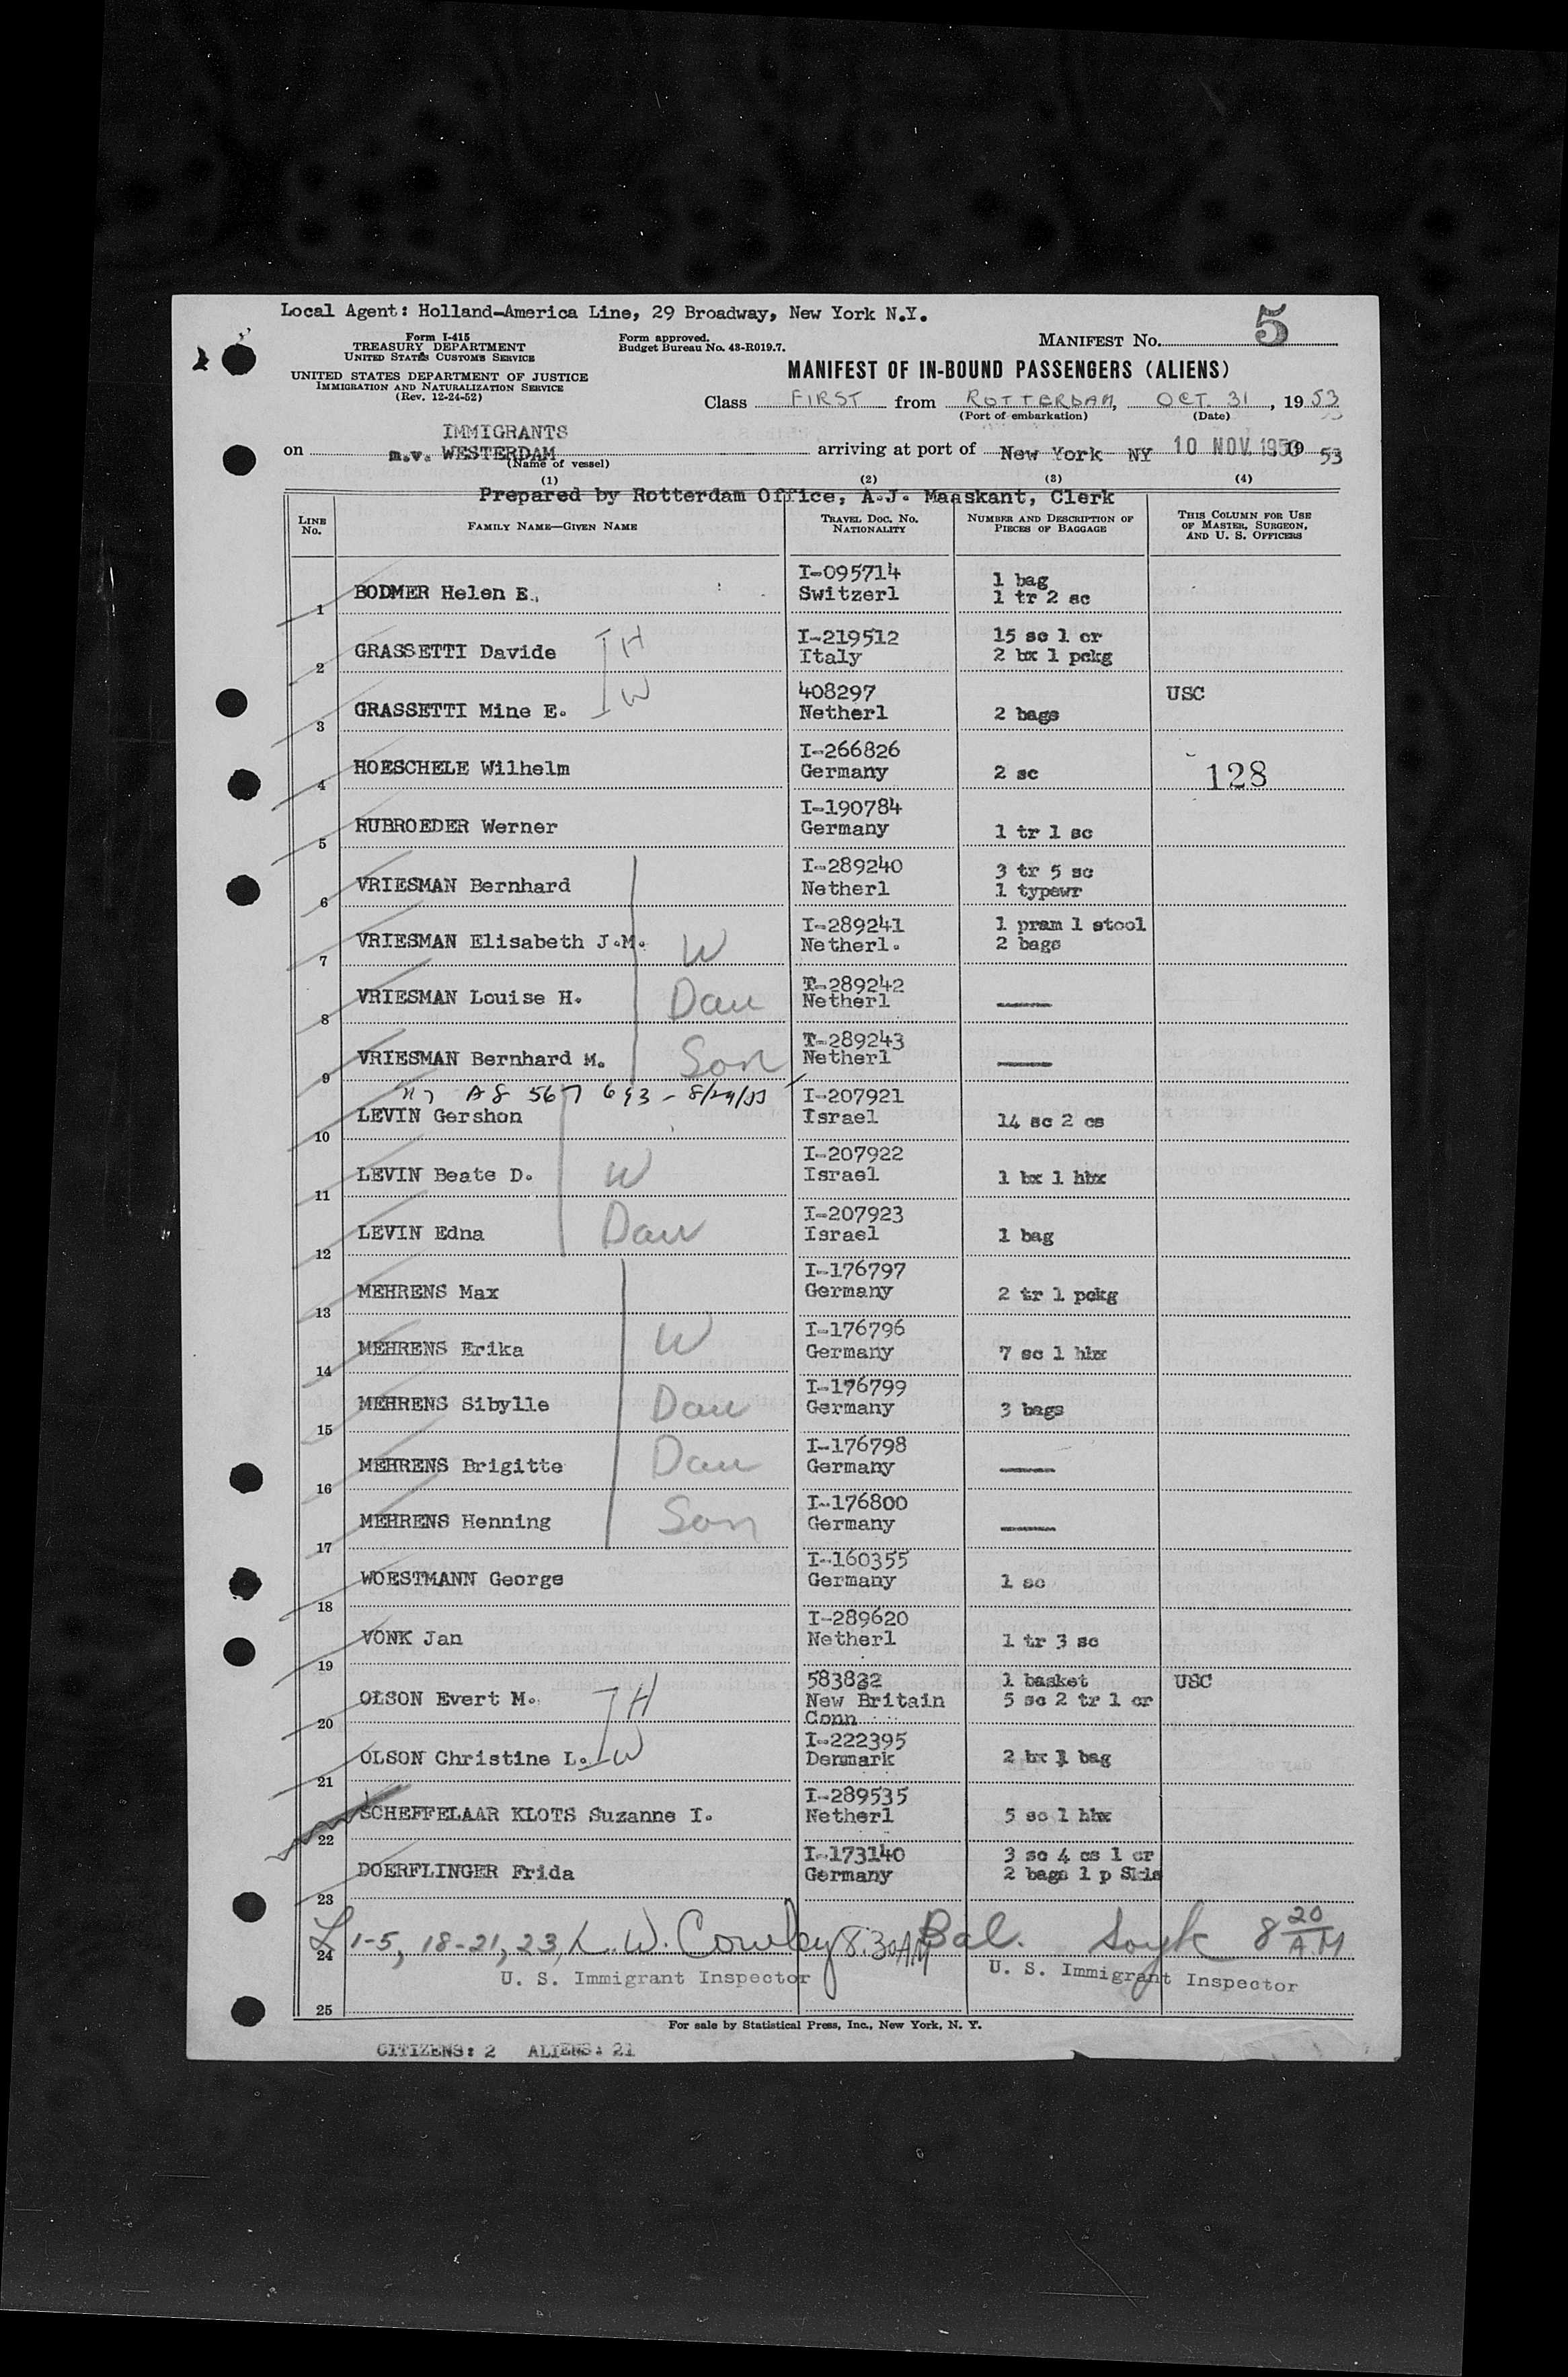 Local Agent: Holland-America Line, 29 Broadway, New York N.Y.
5
Form I-415
TREASURY DEPARTMENT
UNITED STATES CUSTOMS SERVICE
Form approved.
Budget Bureau No. 43-R019.7.
MANIFEST No.
UNITED STATES DEPARTMENT OF JUSTICE
IMMIGRATION AND NATURALIZATION SERVICE
(Rev. 12-24-52)
MANIFEST OF IN-BOUND PASSENGERS (ALIENS)
Class FIRST from ROTTERDAM, OCT. 31, 1953
(Port of embarkation) (Date)
IMMIGRANTS
on m.v. WESTERDAM arriving at port of New York NY 10 NOV. 19 53
(Name of vessel)
(1) (2) (3) (4)
Prepared by Rotterdam Office, A.J. Maaskant, Clerk
LINE No. FAMILY NAME—GIVEN NAME TRAVEL DOC. NO. NATIONALITY NUMBER AND DESCRIPTION OF PIECES OF BAGGAGE THIS COLUMN FOR USE OF MASTER, SURGEON, AND U. S. OFFICERS
I-095714 1 bag
1 BODMER Helen E. Switzerl 1 tr 2 sc
I-219512 15 sc 1 cr
2 GRASSETTI Davide H Italy 2 bx 1 pckg
408297 USC
3 GRASSETTI Mine E. W Netherl 2 bags
I-266826
4 HOESCHELE Wilhelm Germany 2 sc 128
I-190784
5 RUBROEDER Werner Germany 1 tr 1 sc
I-289240 3 tr 5 sc
6 VRIESMAN Bernhard Netherl 1 typewr
I-289241 1 pram 1 stool
7 VRIESMAN Elisabeth J.M. W Netherl. 2 bags
I-289242
8 VRIESMAN Louise H. Dau Netherl —
I-289243
9 VRIESMAN Bernhard M. Son Netherl —
A8 567 693 - 8/29/55 I-207921
10 LEVIN Gershon Israel 14 sc 2 cs
I-207922
11 LEVIN Beate D. W Israel 1 bx 1 hbx
I-207923
12 LEVIN Edna Dau Israel 1 bag
I-176797
13 MEHRENS Max Germany 2 tr 1 pckg
I-176796
14 MEHRENS Erika W Germany 7 sc 1 hbx
I-176799
15 MEHRENS Sibylle Dau Germany 3 bags
I-176798
16 MEHRENS Brigitte Dau Germany —
I-176800
17 MEHRENS Henning Son Germany —
I-160355
18 WOESTMANN George Germany 1 sc
I-289620
19 VONK Jan Netherl 1 tr 3 sc
583822 1 basket USC
20 OLSON Evert M. H New Britain 5 sc 2 tr 1 cr
Conn
I-222395
21 OLSON Christine L. W Denmark 2 bx 1 bag
I-289535
22 SCHEFFELAAR KLOTS Suzanne I. Netherl 5 sc 1 hbx
I-173140 3 sc 4 cs 1 cr
23 DOERFLINGER Frida Germany 2 bags 1 p Skis
24 1-5, 18-21, 23, L. W. Cowley 8.30AM Bal. 8 20 A.M
U. S. Immigrant Inspector U. S. Immigrant Inspector
25
For sale by Statistical Press, Inc., New York, N. Y.
CITIZENS: 2 ALIENS: 21